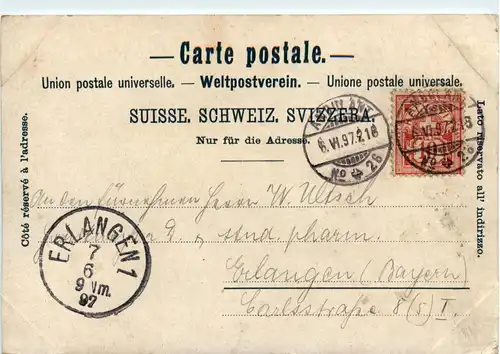 Carte postale.
Union postale universelle. — Weltpostverein. — Unione postale universale.
SUISSE. SCHWEIZ. SVIZZERA.
Nur für die Adresse.
Côté réservé à l'adresse.
Lato riservato all' indirizzo.
6. VI. 97. 218
No 26
VI. 97. 218
No 26
An den fürnehmen Herrn W. Ultsch
stud. pharm.
Erlangen (Bayern)
Carlsstraße 8 (5) I.
ERLANGEN 1
7
6
9 Vm.
97